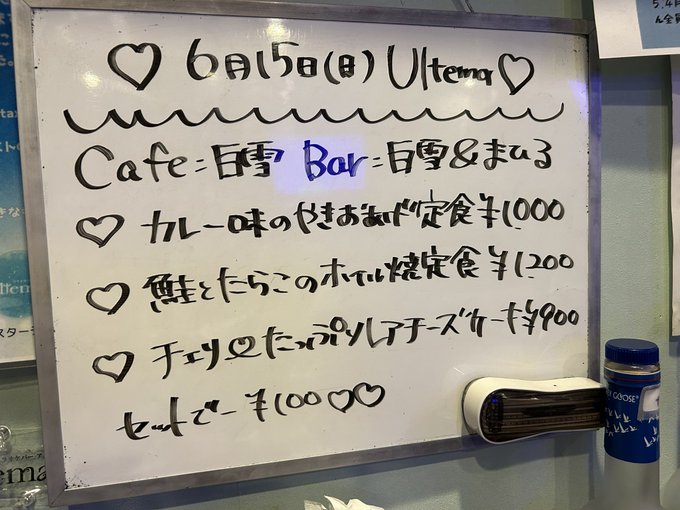 ♡ 6月15日(日) Ultema♡
Cafe=白雪 Bar=白雪&まひる
♡ カレー味のやきおあげ定食 ¥1,000
♡ 鮭とたらこのホイル焼定食 ¥1,200
♡ チェリーたっぷりレアチーズケーキ¥900
セットでー¥100♡♡